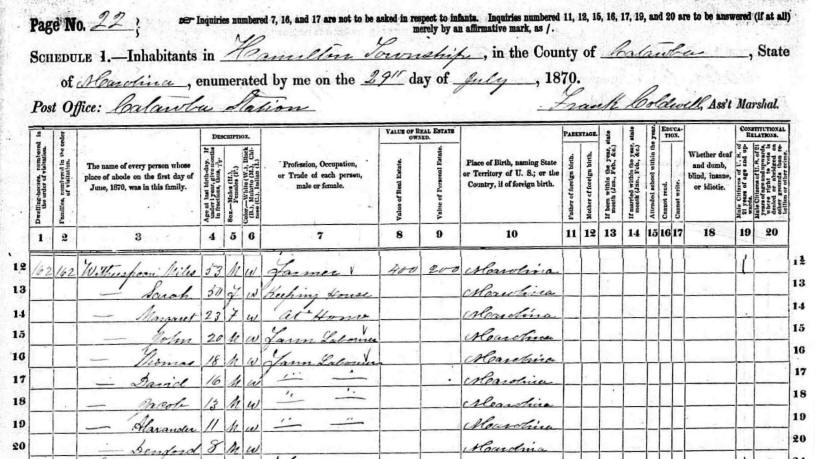 Page No. 22
☞ Inquiries numbered 7, 16, and 17 are not to be asked in respect to infants. Inquiries numbered 11, 12, 15, 16, 17, 19, and 20 are to be answered (if at all) merely by an affirmative mark, as /.
SCHEDULE 1.—Inhabitants in Hamilton Township, in the County of Catawba, State
of N Carolina, enumerated by me on the 29" day of July, 1870.
Post Office: Catawba Station
Frank Coldwell, Ass't Marshal.
Dwelling-houses, numbered in the order of visitation.
Families, numbered in the order of visitation.
The name of every person whose place of abode on the first day of June, 1870, was in this family.
DESCRIPTION.
Age at last birth-day. If under 1 year, give months in fractions, thus,
Sex.—Males (M.), Females (F.)
Color.—White (W.), Black (B.), Mulatto (M.), Chinese (C.), Indian (I.)
Profession, Occupation, or Trade of each person, male or female.
VALUE OF REAL ESTATE OWNED.
Value of Real Estate.
Value of Personal Estate.
Place of Birth, naming State or Territory of U. S.; or the Country, if of foreign birth.
PARENTAGE.
Father of foreign birth.
Mother of foreign birth.
If born within the year, state month (Jan., Feb., &c.)
If married within the year, state month (Jan., Feb., &c.)
Attended school within the year.
EDUCATION.
Cannot read.
Cannot write.
Whether deaf and dumb, blind, insane, or idiotic.
CONSTITUTIONAL RELATIONS.
Male Citizens of U. S. of 21 years of age and upwards.
1 2 3 4 5 6 7 8 9 10 11 12 13 14 15 16 17 18 19 20
12 162 162 Witherspoon Miles 53 M W Farmer 400 200 N Carolina / 12
13 — Sarah 50 F W Keeping House N Carolina 13
14 — Margaret 23 F W At Home N Carolina 14
15 — John 20 M W Farm Laborer N Carolina 15
16 — Thomas 18 M W Farm Laborer N Carolina 16
17 — David 16 M W " " N Carolina 17
18 — Jacob 13 M W " " N Carolina 18
19 — Alaxander 11 M W " " N Carolina 19
20 — 8 M W N Carolina 20